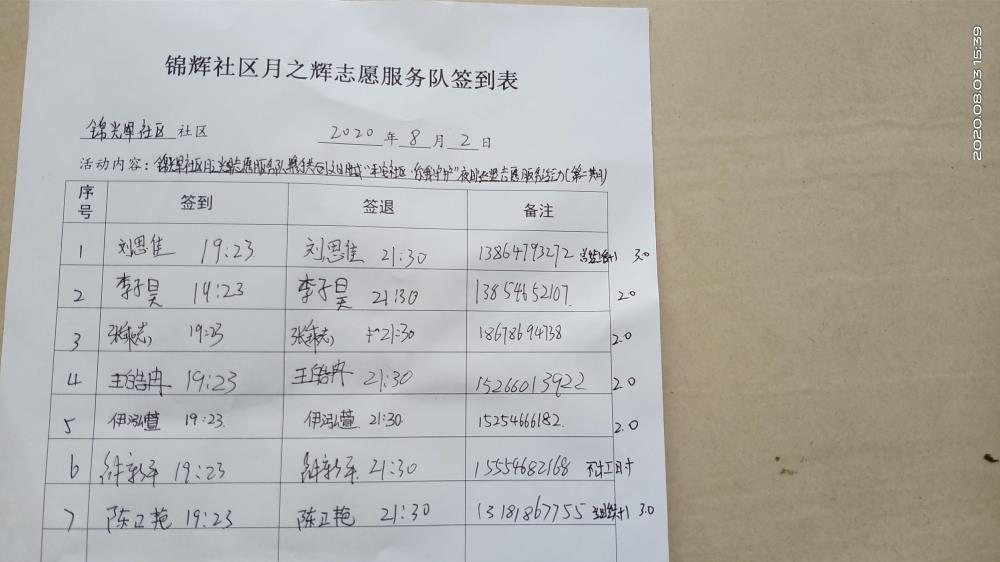 锦辉社区月之辉志愿服务队签到表
锦辉社区 社区 2020 年 8 月 2 日
活动内容：锦辉社区月之辉志愿服务队 "平安社区·你我守护"夜间巡逻志愿服务活动(第二期)
序号 签到 签退 备注
1 刘思佳 19:23 刘思佳 21:30 13864793272 +1 3.0
2 李子昊 19:23 李子昊 21:30 13854652107. 2.0
3 19:23 21:30 18678694738 2.0
4 王皓冉 19:23 王皓冉 21:30 15266013922 2.0
5 伊泓萱 19:23. 伊泓萱 21:30. 15254666182. 2.0
6 19:23 21:30 15554682168 不计工时
7 陈卫艳 19:23 陈卫艳 21:30 13181867755 +1 3.0
2020.08.03 15:39